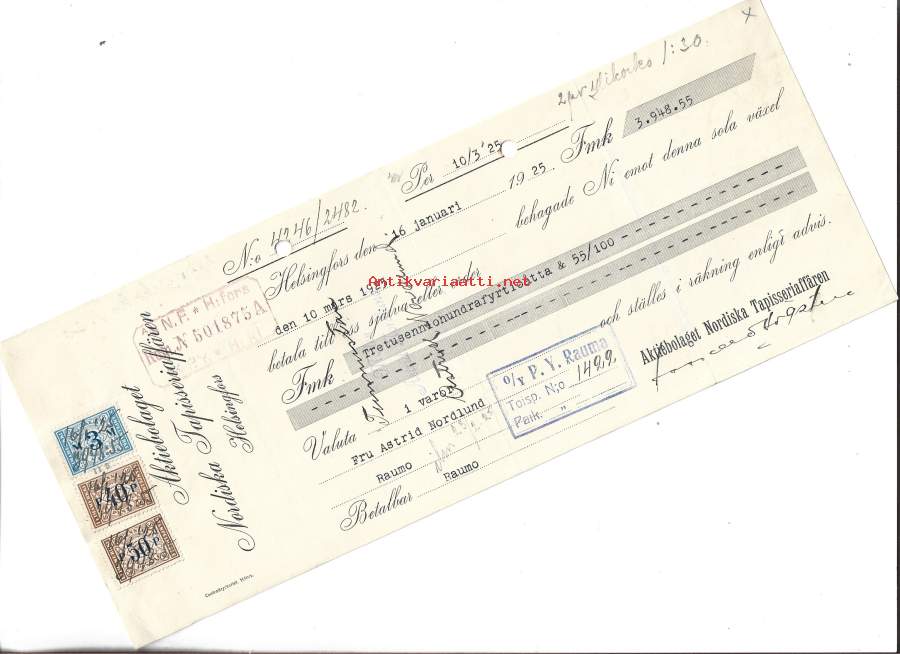 x
2 pr 1:30.
Per 10/3'25
N:o 4246/2482.
Helsingfors den 16 januari 1925 Fmk 3.948.55
den 10 mars 1925 behagade Ni emot denna sola växel
betala till oss själva eller order
Fmk Tretusenniohundrafyrtioåtta & 55/100
Valuta i varor och ställes i räkning enligt advis.
Fru Astrid Nordlund Aktiebolaget Nordiska Tapisseriaffären
Raumo
Betalbar Raumo
Astrid Nordlund
O/Y P. Y. Rauma
Toisp. N:o 1499
Paik. "
N.F. * H:fors
N 501875A
Aktiebolaget
Nordiska Tapisseriaffären
Helsingfors
3
40 P
50 P
Antikvariaatti.net